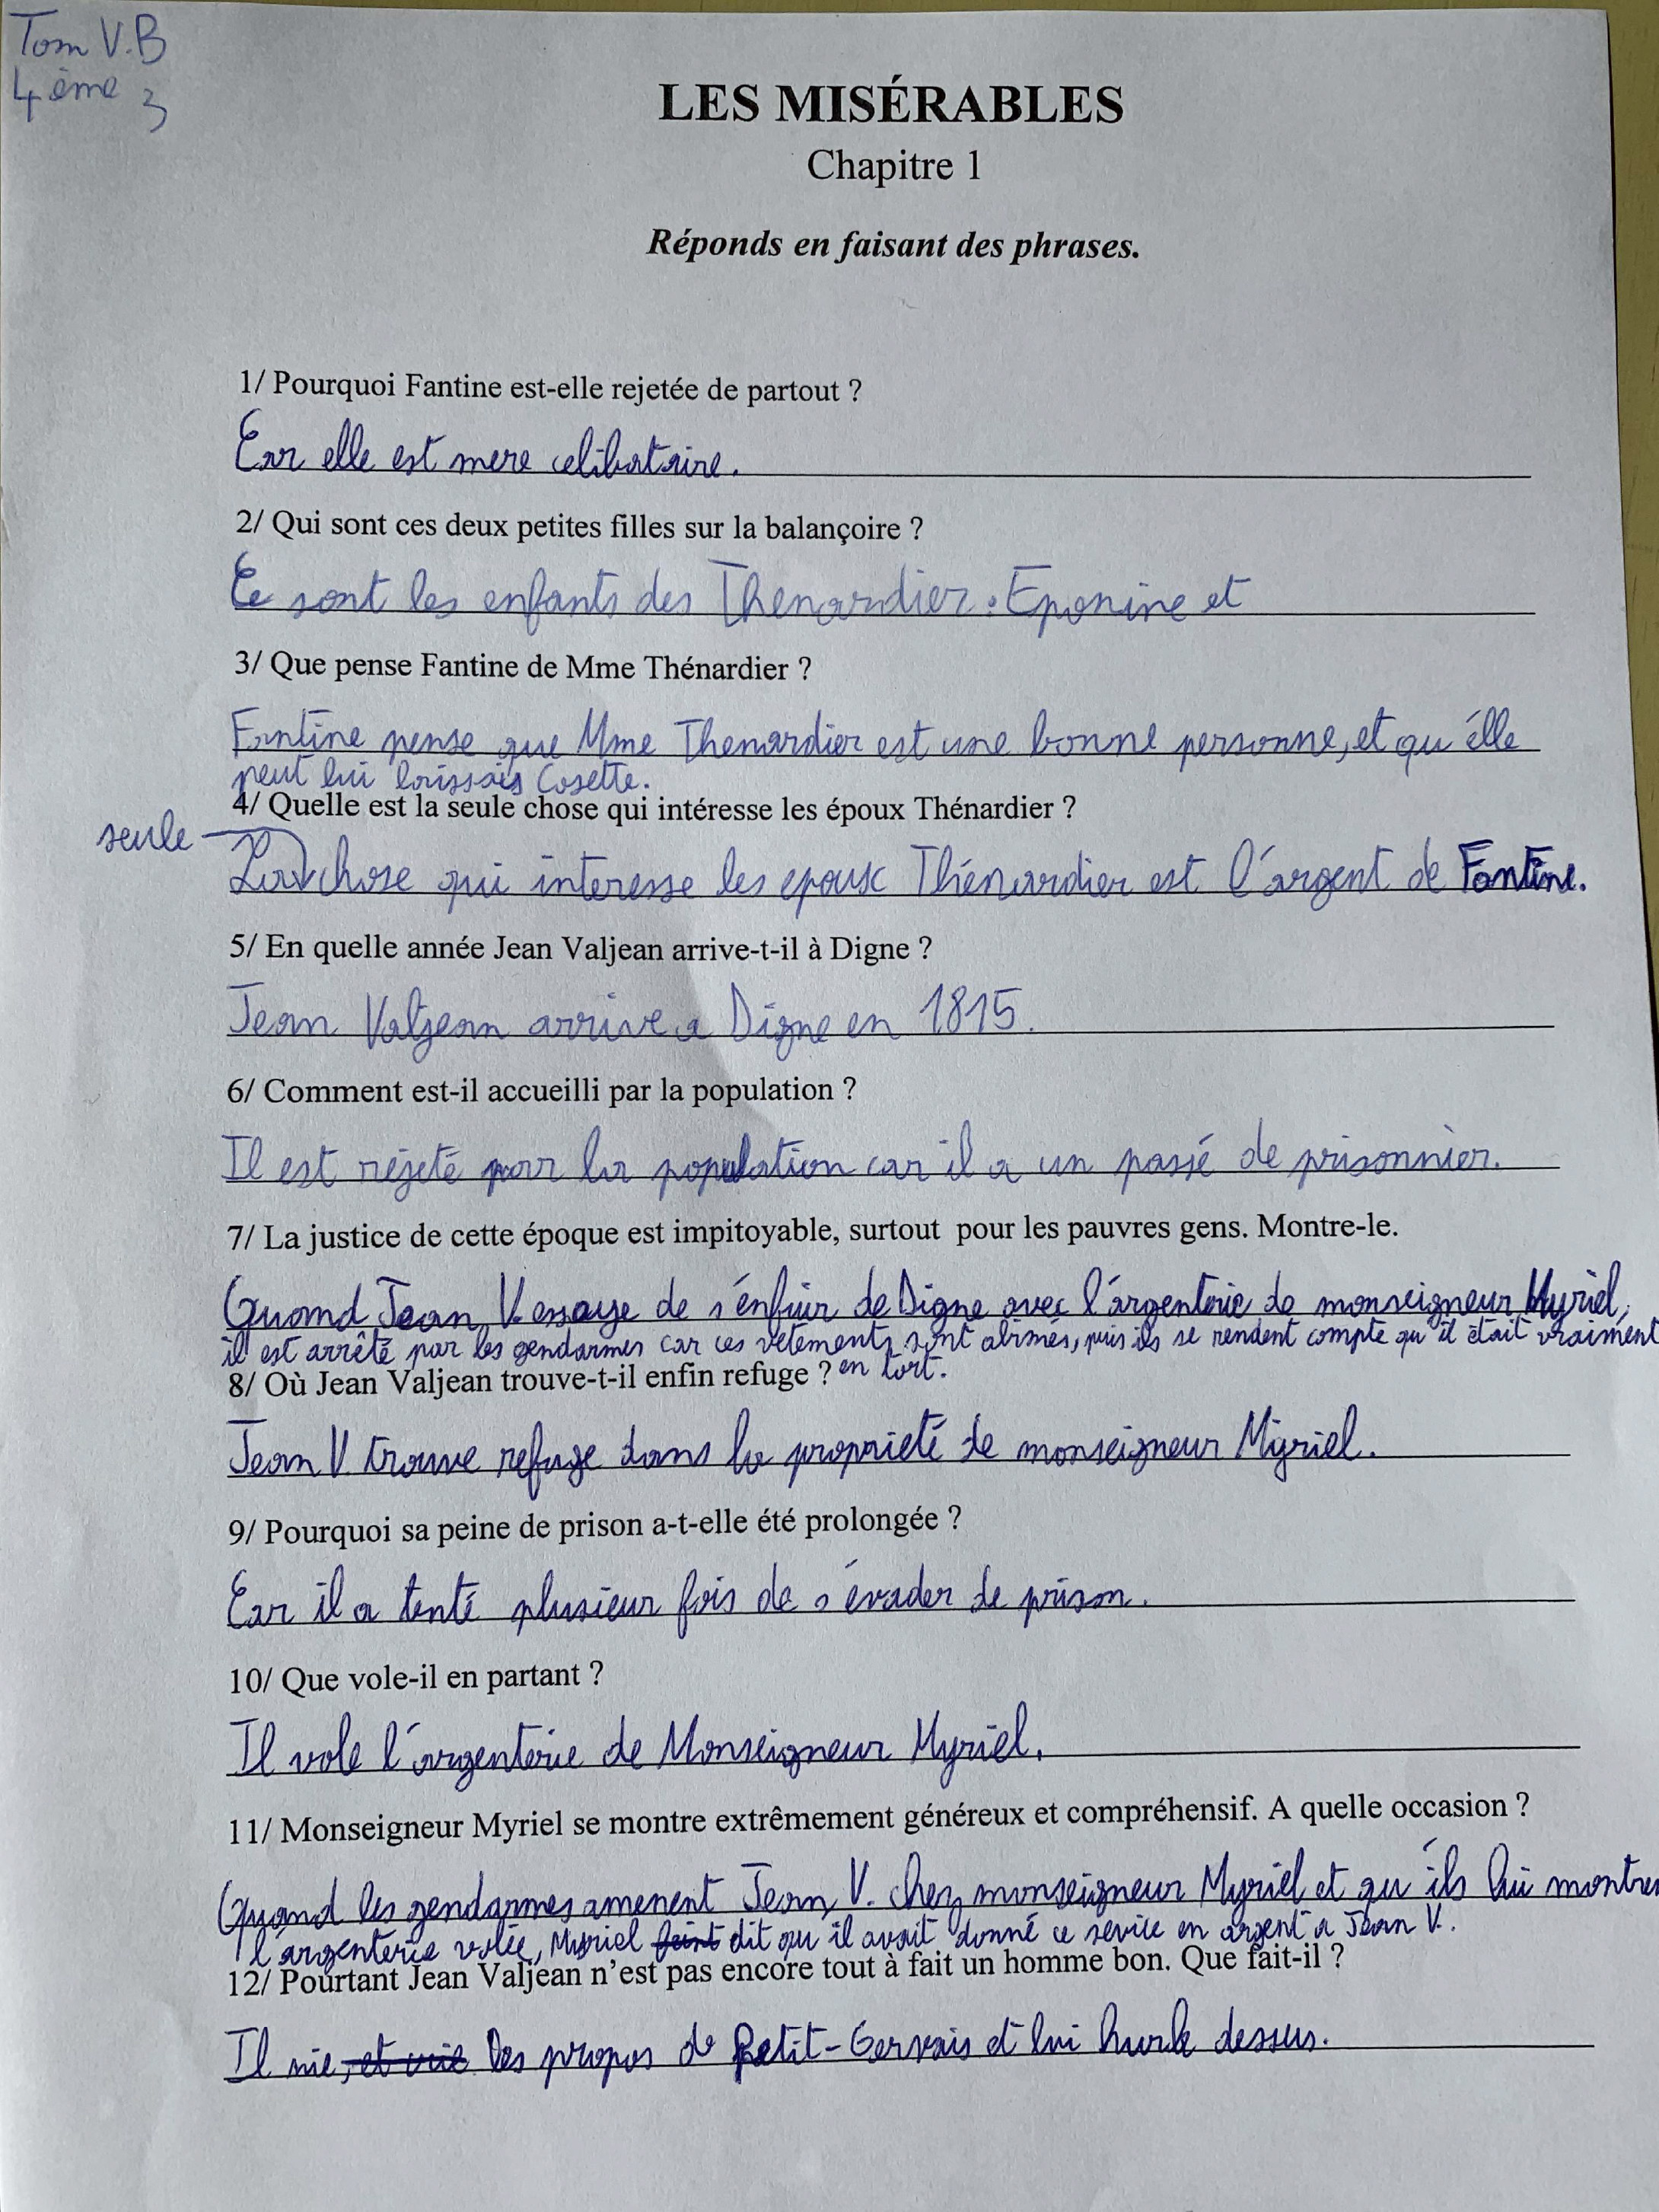 Tom V.B
4ème 3
LES MISÉRABLES
Chapitre 1
Réponds en faisant des phrases.
1/ Pourquoi Fantine est-elle rejetée de partout ?
Car elle est mere celibataire.
2/ Qui sont ces deux petites filles sur la balançoire ?
Ce sont les enfants des Thenardier : Eponine et
3/ Que pense Fantine de Mme Thénardier ?
Fantine pense que Mme Thenardier est une bonne personne, et qu'elle
peut lui laissais Cosette.
4/ Quelle est la seule chose qui intéresse les époux Thénardier ?
seule
La chose qui interesse les epoux Thénardier est l'argent de Fantine.
5/ En quelle année Jean Valjean arrive-t-il à Digne ?
Jean Valjean arrive a Digne en 1815.
6/ Comment est-il accueilli par la population ?
Il est réjeté par la population car il a un passé de prisonnier.
7/ La justice de cette époque est impitoyable, surtout pour les pauvres gens. Montre-le.
Quand Jean V. essaye de s'enfuir de Digne avec l'argenterie de monseigneur Myriel,
il est arrêté par les gendarmes car ces vêtements sont abimés, puis ils se rendent compte qu'il était vraiment
8/ Où Jean Valjean trouve-t-il enfin refuge ? en tort.
Jean V. trouve refuge dans la proprieté de monseigneur Myriel.
9/ Pourquoi sa peine de prison a-t-elle été prolongée ?
Car il a tenté plusieur fois de s'évader de prison.
10/ Que vole-il en partant ?
Il vole l'argenterie de Monseigneur Myriel.
11/ Monseigneur Myriel se montre extrêmement généreux et compréhensif. A quelle occasion ?
Quand les gendarmes amenent Jean V. chez monseigneur Myriel et qu'ils lui montres
l'argenterie volée, Myriel feint dit qu'il avait donné ce sevice en argent a Jean V.
12/ Pourtant Jean Valjean n'est pas encore tout à fait un homme bon. Que fait-il ?
Il nie, les propos de Petit-Gervais et lui hurle dessus.